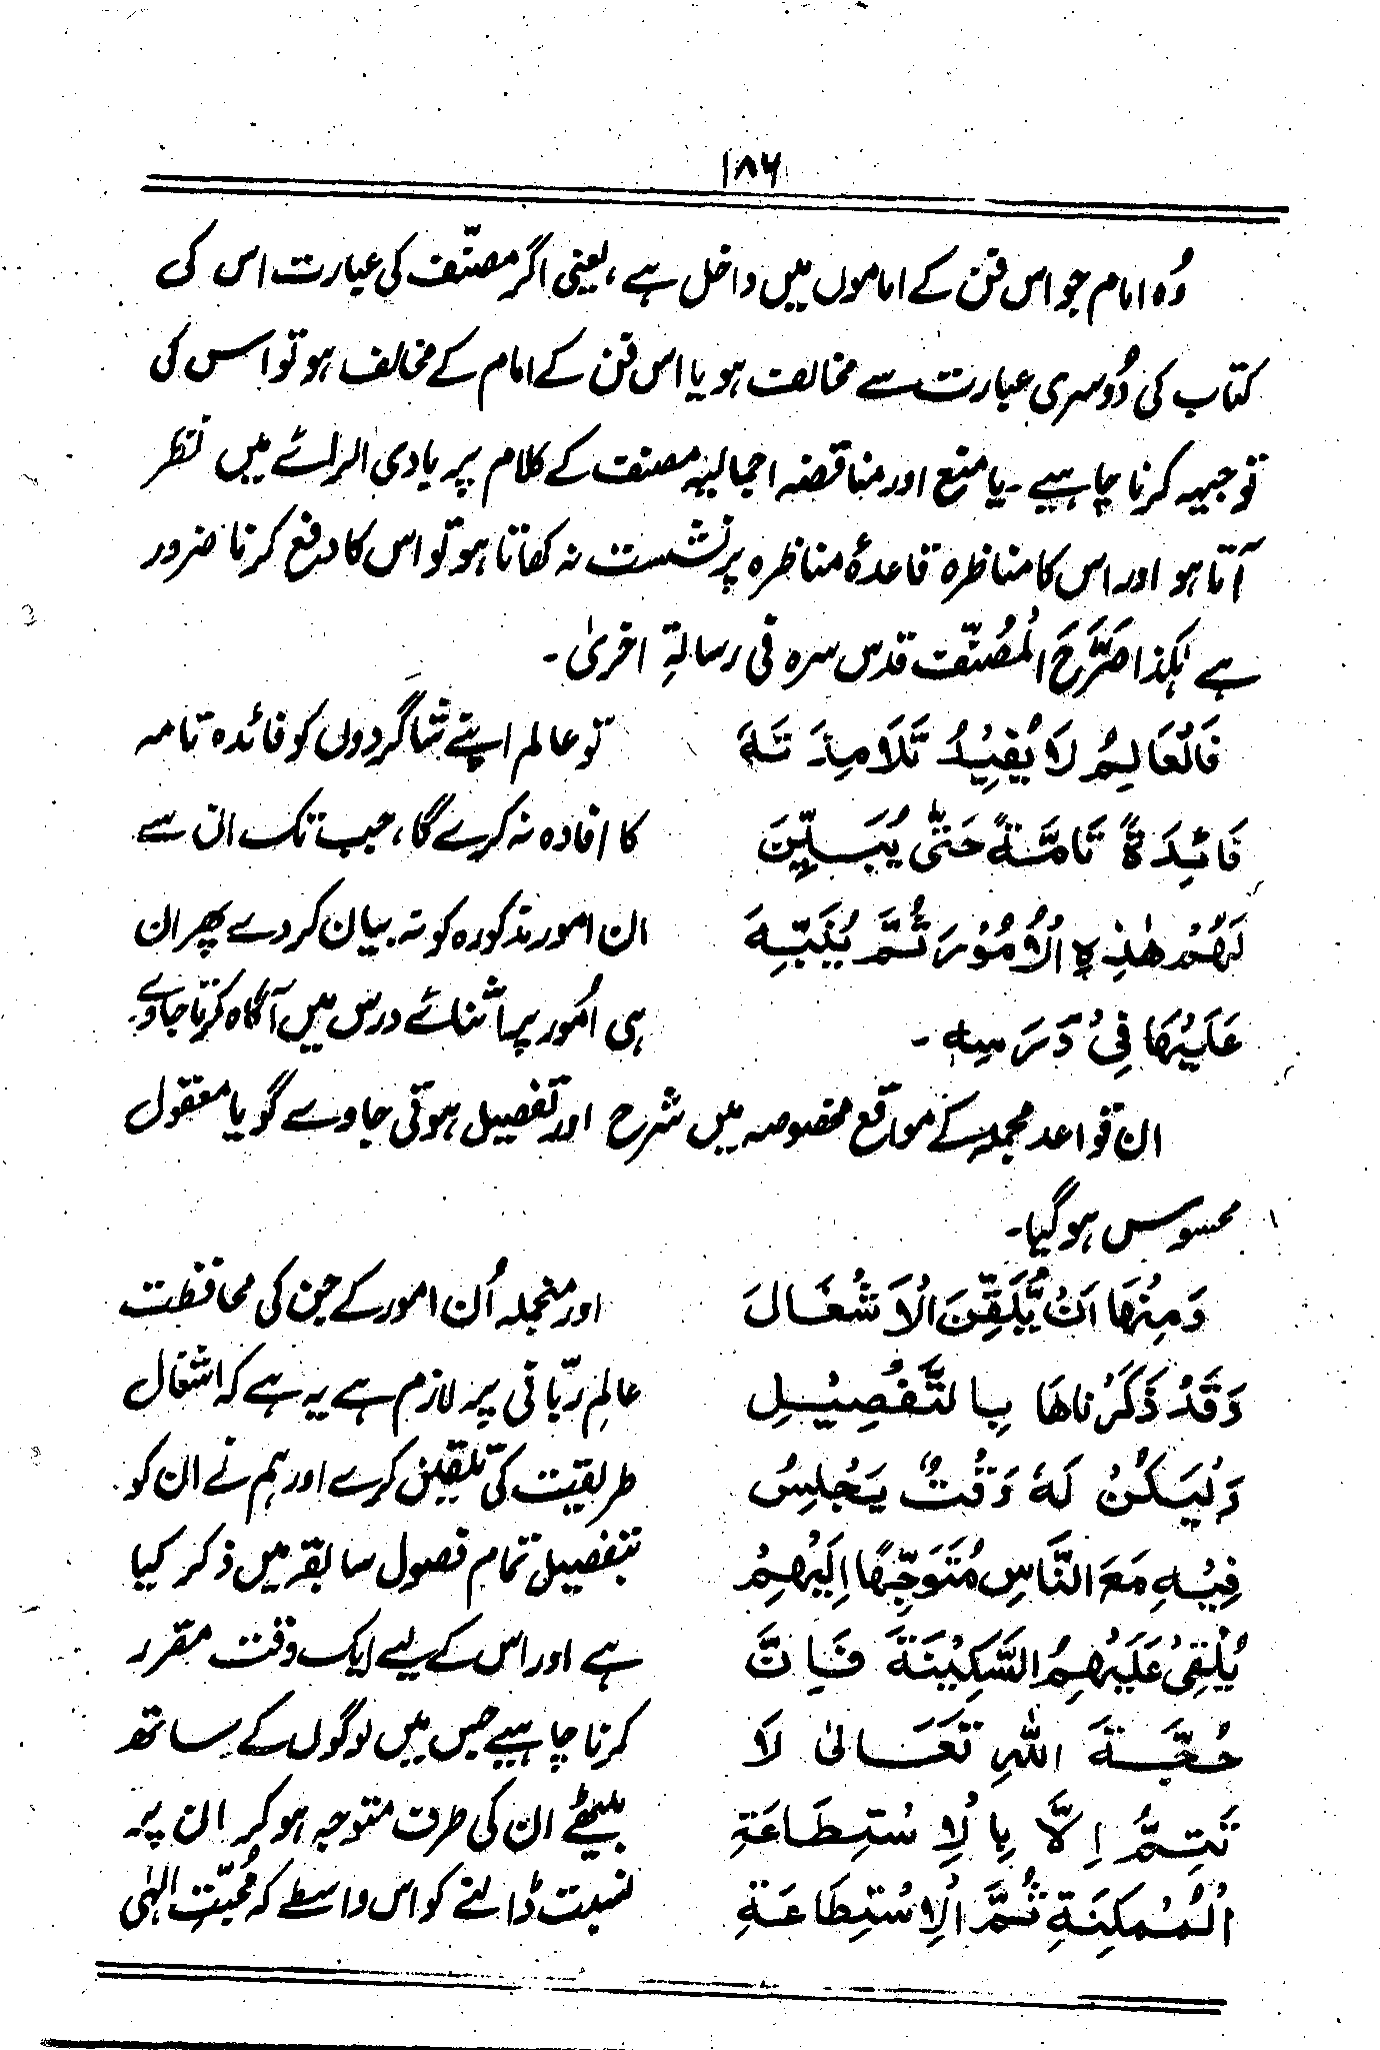 ۱۸۶
وُہ امام جو اس فن کے اماموں میں داخل ہے، یعنی اگر مصنّف کی عبارت اس کی
کتاب کی دُوسری عبارت سے مخالف ہو یا اس فن کے امام کے مخالف ہو تو اس کی
توجیہہ کرنا چاہیے ۔ یا منع اور مناقضہ اجمالیہ مصنف کے کلام پر بادی الرائے میں نظر
آتا ہو اور اس کا مناظرہ قاعدۂ مناظرہ پر نشست نہ کھاتا ہو تو اس کا دفع کرنا ضرور
ہے ہٰکذا صَرَّحَ الْمُصَنِّف قدس سرہ فی رسالۃِ اخریٰ ۔
فَالْعَالِمُ لَا يُفِيْدُ تَلَامِذَتَهٗ
فَائِدَةً تَامَّةً حَتّٰى يُبَيِّنَ
لَهُمْ هٰذِهِ الْاُمُوْرَ ثُمَّ يُنَبِّهَ
عَلَيْهَا فِيْ دَرْسِهٖ ۔
تو عالم اپنے شاگردوں کو فائدہ تامہ
کا افادہ نہ کرے گا، جب تک ان سے
ان امور مذکورہ کو نہ بیان کر دے پھر ان
ہی اُمور پر اثنائے درس میں آگاہ کرتا جاوے۔
ان قواعد مجملہ کے مواقع مخصوصہ میں شرح اور تفصیل ہوتی جاوے گویا معقول
محسوس ہو گیا۔
وَمِنْهَا اَنْ يُّلَقِّنَ الْاَشْغَالَ
وَقَدْ ذَكَرْنَاهَا بِالتَّفْصِيْلِ
وَلْيَكُنْ لَهٗ وَقْتٌ يَجْلِسُ
فِيْهِ مَعَ النَّاسِ مُتَوَجِّهًا اِلَيْهِمْ
يُلْقِيْ عَلَيْهِمُ السَّكِيْنَةَ فَاِنَّ
حُجَّةَ اللهِ تَعَالىٰ لَا
تَتِمُّ اِلَّا بِالْاِسْتِطَاعَةِ
الْمُمْكِنَةِ ثُمَّ الْاِسْتِطَاعَةِ
اور منجملہ اُن امور کے جن کی محافظت
عالِم ربّانی پر لازم ہے یہ ہے کہ اشغال
طریقت کی تلقین کرے اور ہم نے ان کو
بتفصیل تمام فصول سابقہ میں ذکر کیا
ہے اور اس کے لیے ایک وقت مقرر
کرنا چاہیے جس میں لوگوں کے ساتھ
بیٹھے ان کی طرف متوجہ ہو کر ان پر
نسبت ڈالنے کو اس واسطے کہ مُحبّتِ الہٰی